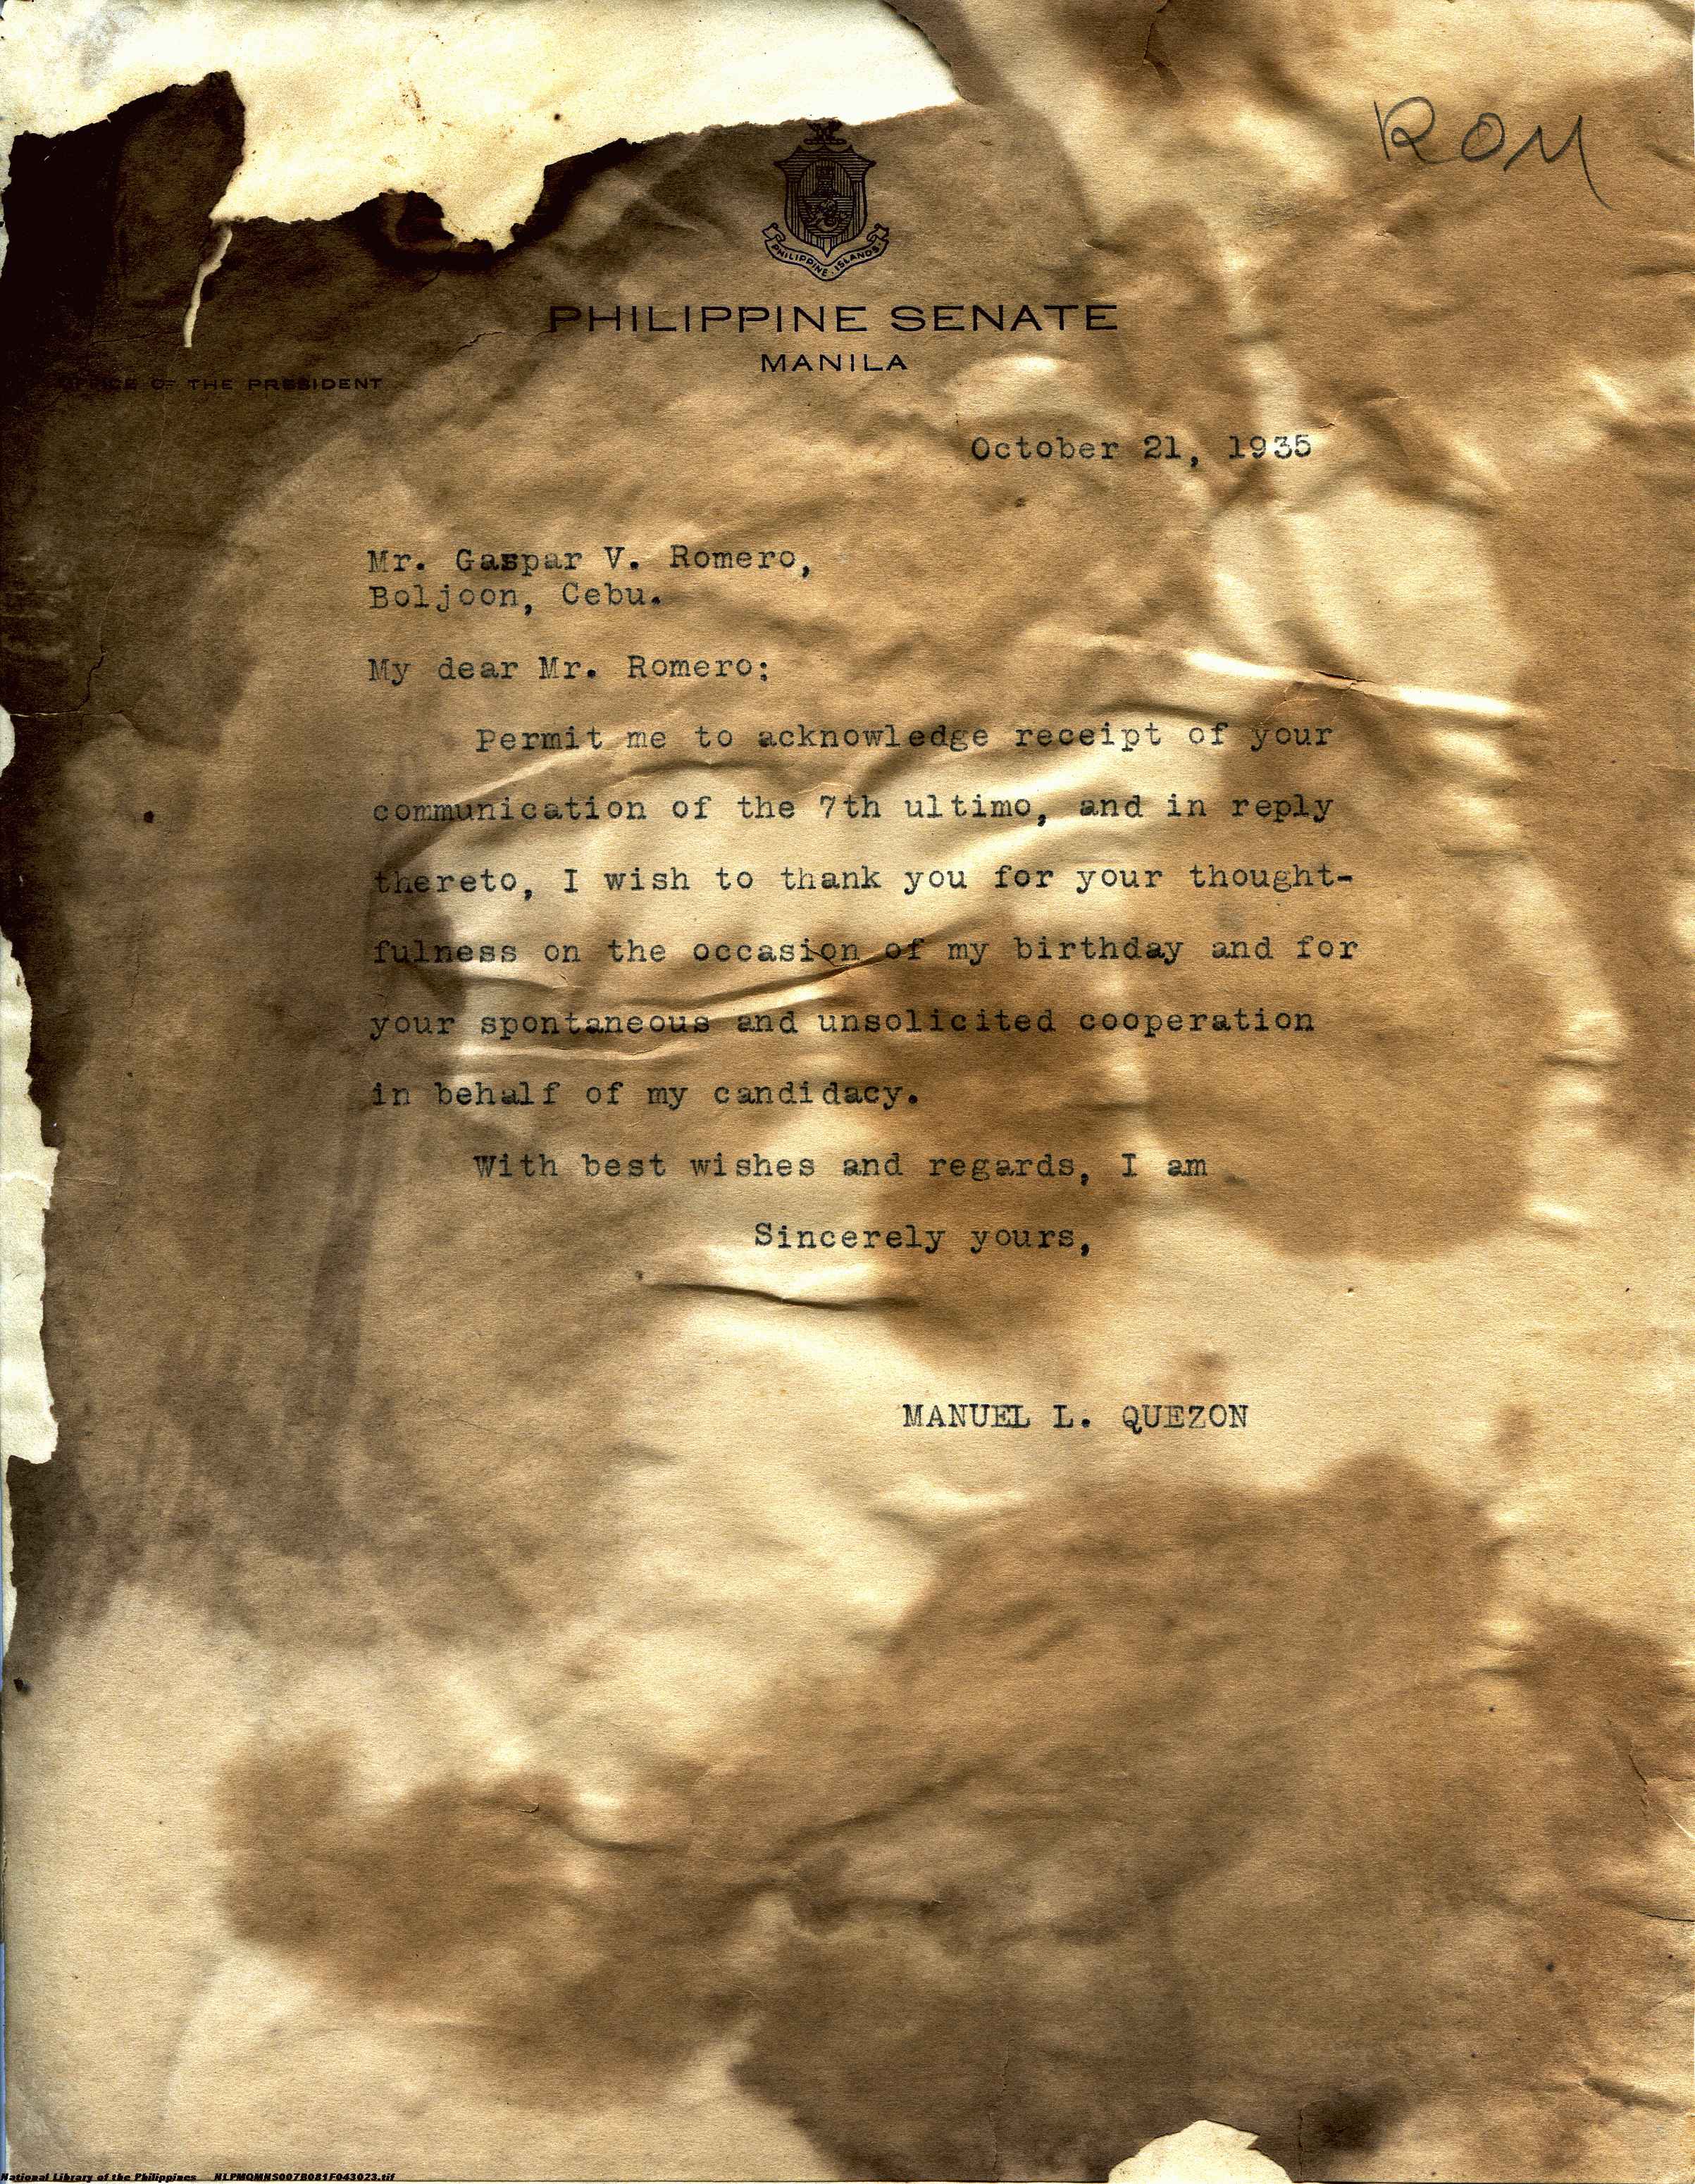 ROM
PHILIPPINE ISLANDS
PHILIPPINE SENATE
MANILA
OFFICE OF THE PRESIDENT
October 21, 1935
Mr. Gaspar V. Romero,
Boljoon, Cebu.
My dear Mr. Romero:
Permit me to acknowledge receipt of your
communication of the 7th ultimo, and in reply
thereto, I wish to thank you for your thought-
fulness on the occasion of my birthday and for
your spontaneous and unsolicited cooperation
in behalf of my candidacy.
With best wishes and regards, I am
Sincerely yours,
MANUEL L. QUEZON
National Library of the Philippines NLPMQMNS007B081F043023.tif